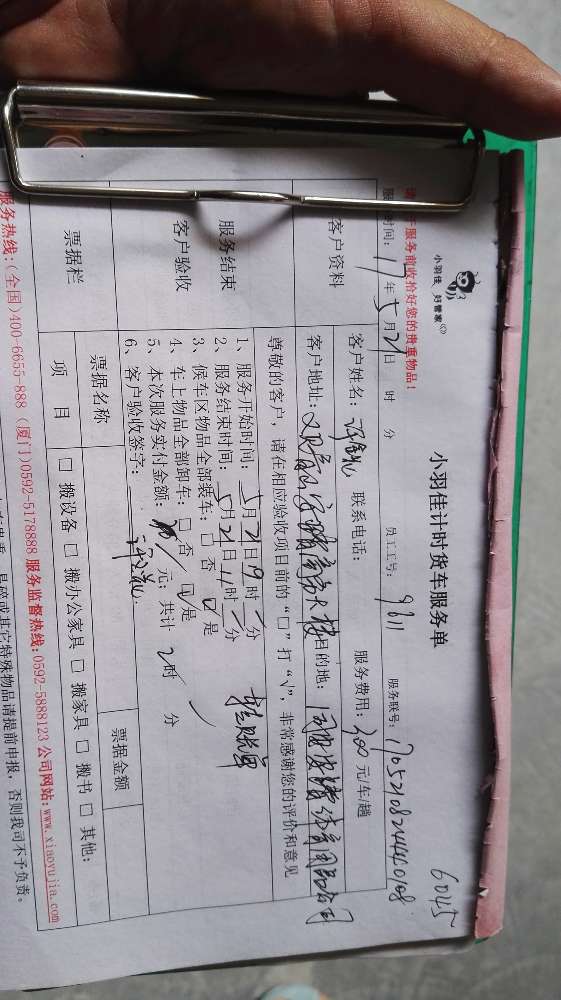 6045
小羽佳 好管家
小羽佳计时货车服务单
请 于服务前收拾好您的贵重物品!
时间: 17 年 5 月 21 日 时 分 员工工号: 9611 服务联号: 1705210824440108
客户资料
客户姓名: 联系电话: 服务费用: 300 元/车/趟
客户地址: 目的地:
尊敬的客户,请在相应验收项目前的“□”打“√”,非常感谢您的评价和意见
服务结束
客户验收
1、服务开始时间: 5月21日9时 分
2、服务结束时间: 5月21日11时 分
3、候车区物品全部装车: □ 否 ☑ 是
4、车上物品全部卸车: □ 否 ☑ 是
5、本次服务实付金额: 元; 共计 2 时 分
6、客户验收签字:
票据栏
票据名称 票据金额
项 目 □ 搬设备 □ 搬办公家具 □ 搬家具 □ 搬书 □ 其他:
服务热线:(全国)400-6655-888 (厦门)0592-5178888 服务监督热线:0592-5888123 公司网站:www.xiaoyujia.com
易碎或其它特殊物品请提前申报,否则我司不予负责。